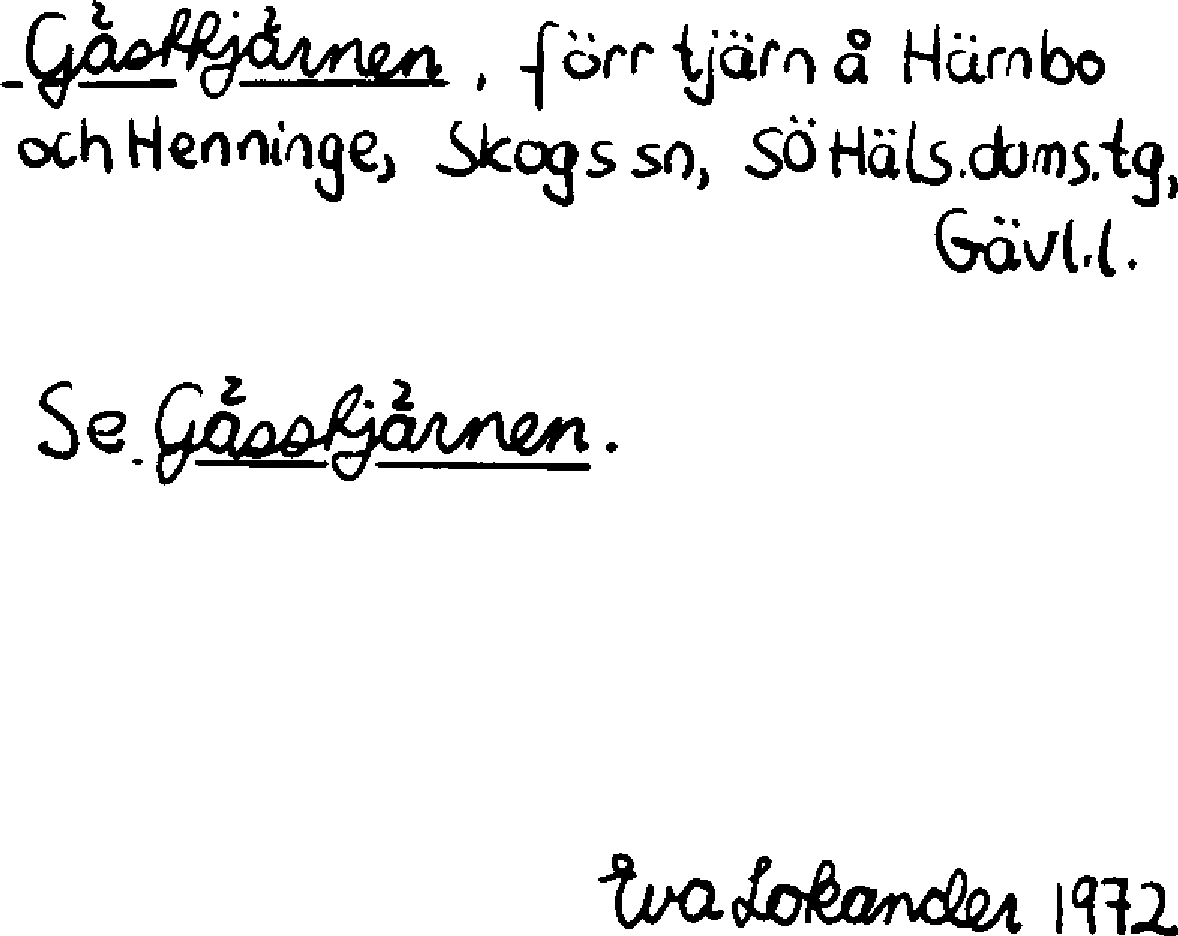 Gåstkjärnen, förr tjärn å Härnbo
och Henninge, Skogs sn, SÖ Häls. doms. tg,
Gävl. l.
Se Gåsskjärnen.
Eva Lokander 1972